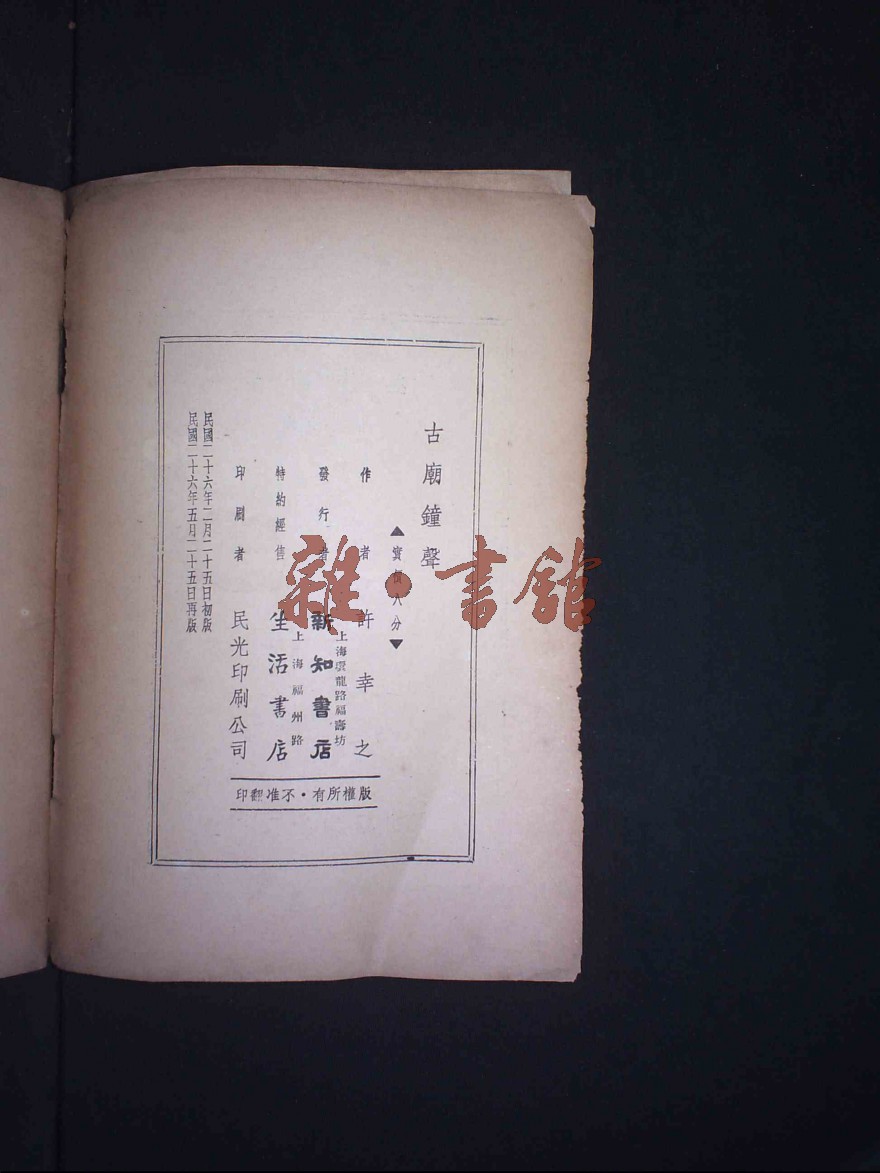 古廟鐘聲
▲實價八分▼
作者 許幸之
上海虞龍路福壽坊
發行者 新知書店
上海福州路
特約經售 生活書店
印刷者 民光印刷公司
民國二十六年二月二十五日初版
民國二十六年五月二十五日再版
版權所有・不准翻印
雜・書館